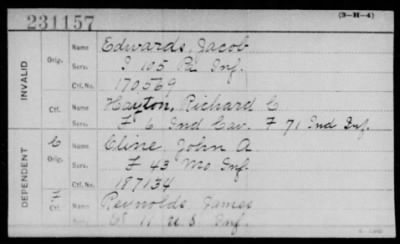 231157
(3-H-4)
INVALID
Orig.
Name Edwards, Jacob
Serv. I 105 Pa Inf.
Ctf. No. 170569
Ctf.
Name Hayton, Richard C
Serv. F 6 Ind Cav. F 71 Ind Inf.
DEPENDENT
C
Orig.
Name Cline, John A
Serv. F 43 Mo Inf.
Ctf. No. 187134
Ctf.
Name Reynolds, James
Serv. 11 U S Inf.